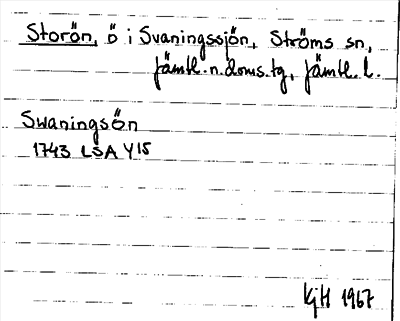 Storön, ö i Svaningssjön, Ströms sn,
Jämtl. n. doms. tg, Jämtl. l.
Swaningsön
1743 LSA Y15
KjH 1967